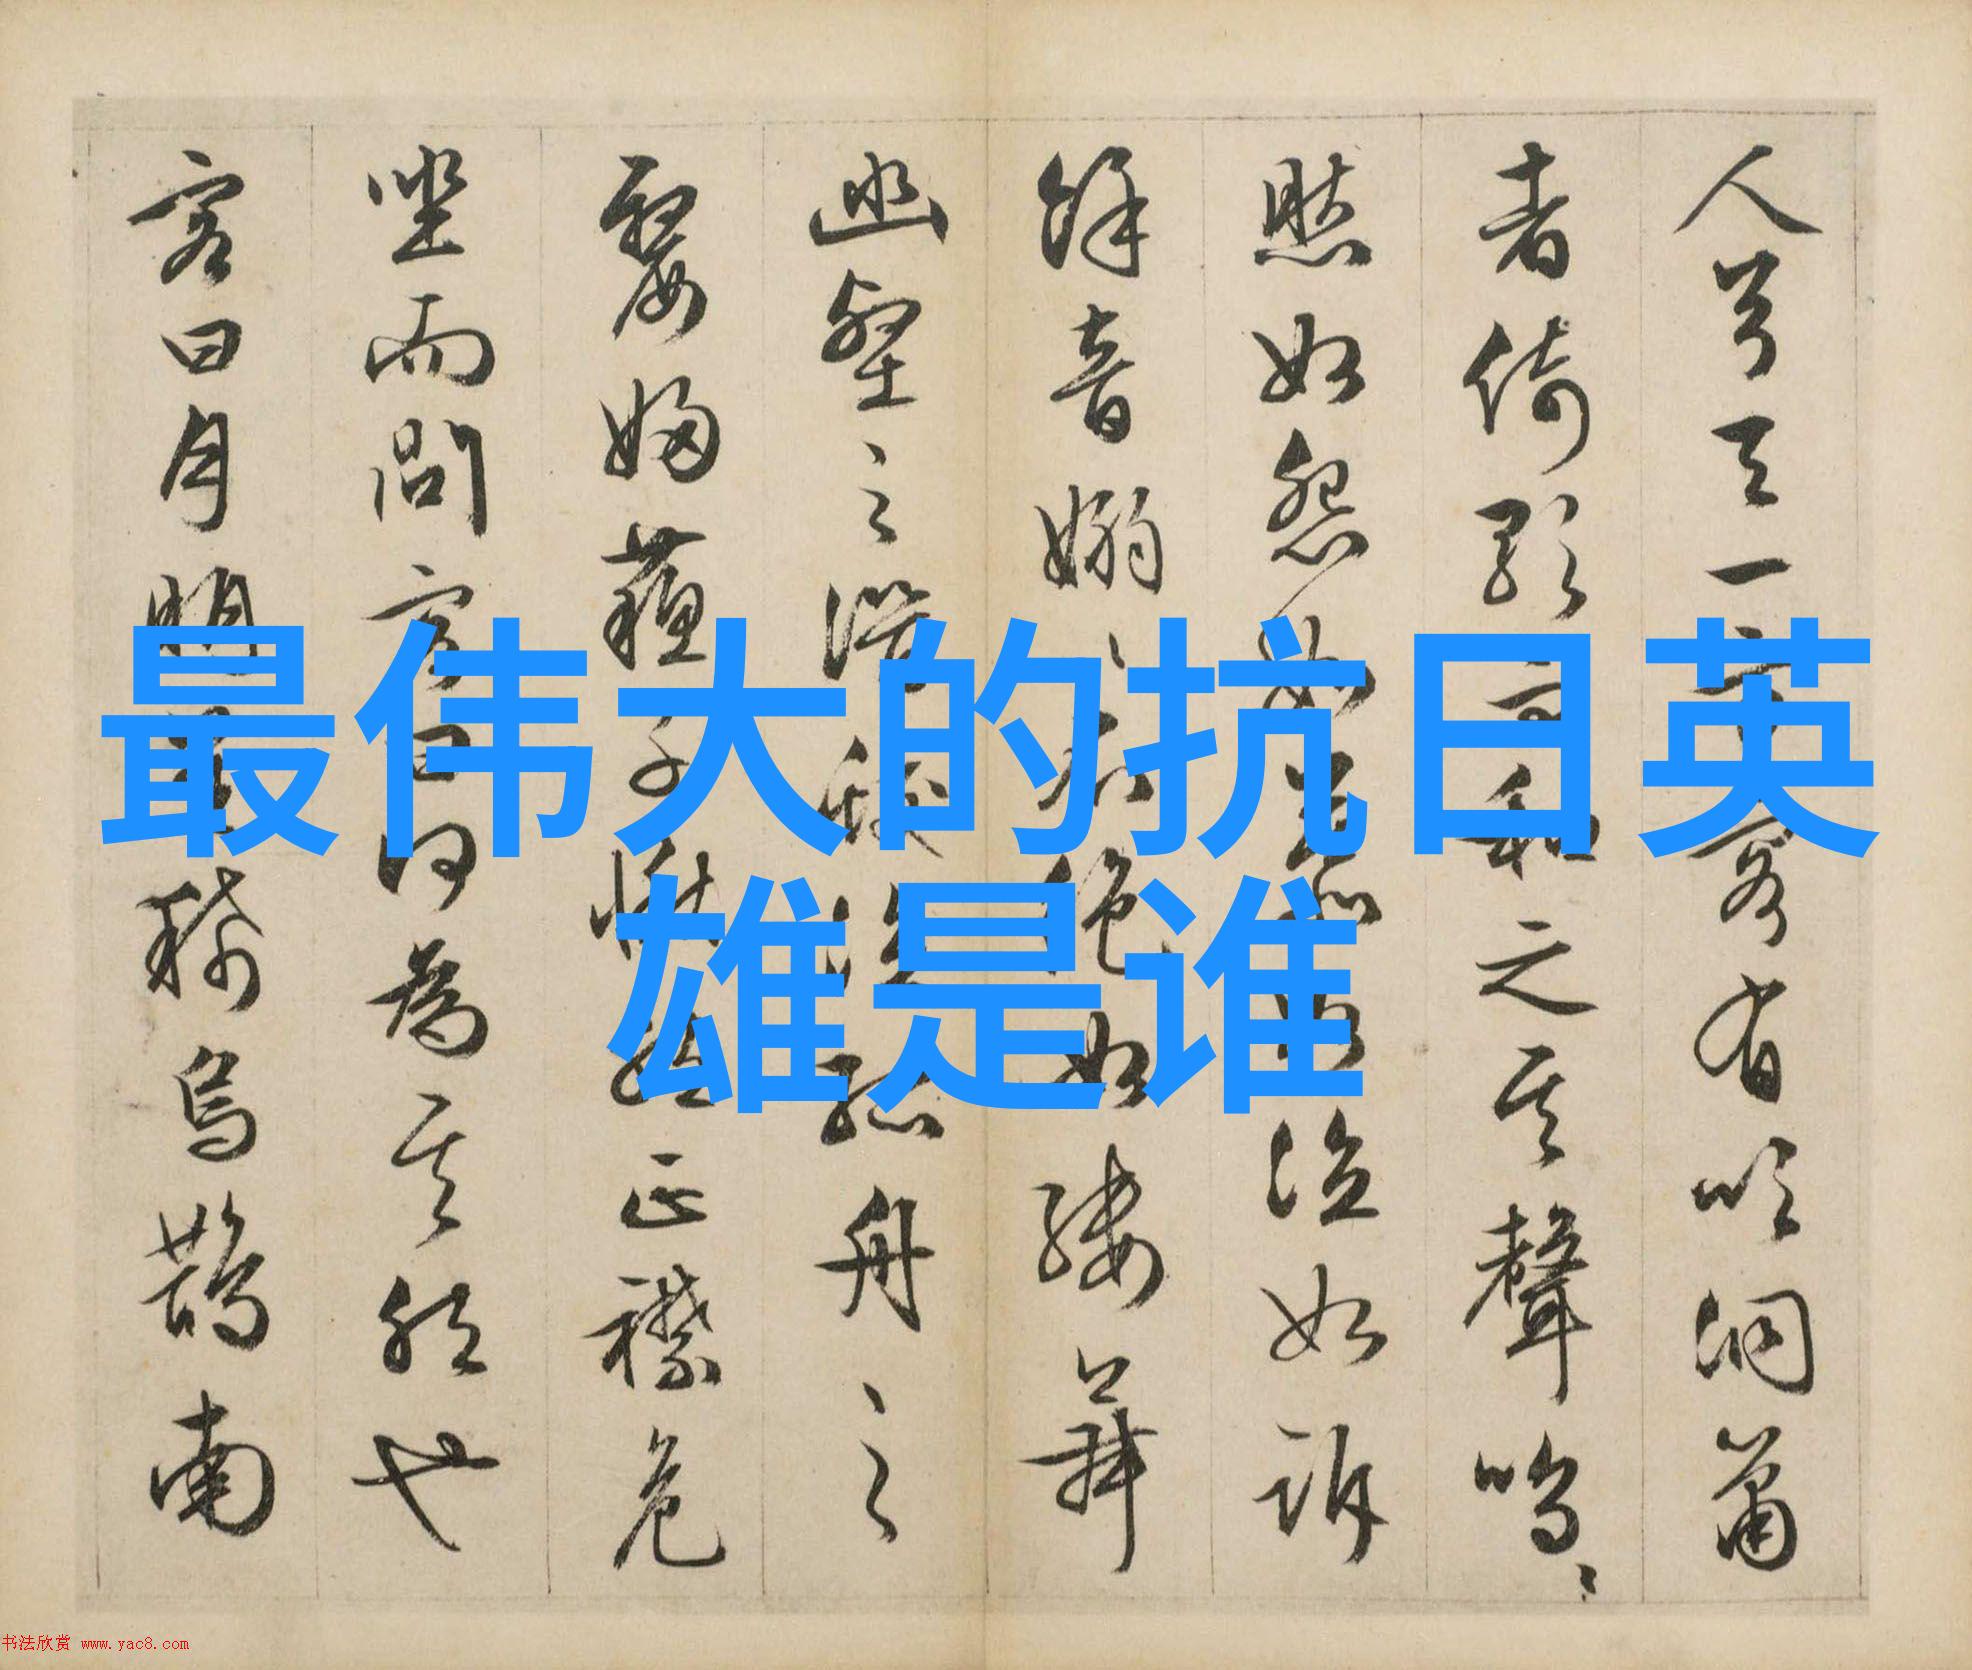 人兮天一方客有吹洞簫
者倚歌而和之其聲嗚〻
然如怨如慕如泣如訴
餘音嫋〻不絕如縷舞
幽壑之潛蛟泣孤舟之
嫠婦蘇子愀然正襟危
坐而問客曰何為其然也
客曰月明星稀烏鵲南
最伟大的抗日英
雄是谁
书法欣赏 www.yac8.com